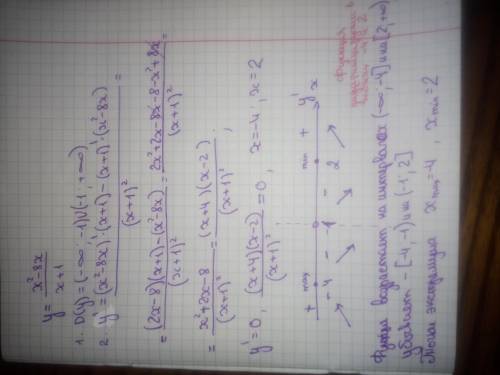 y = (x²-8x)/(x+1)
1. D(y) = (-∞; -1)∪(-1; +∞)
2. y' = ((x²-8x)'·(x+1) - (x+1)'·(x²-8x))/(x+1)² =
= ((2x-8)(x+1) - (x²-8x))/(x+1)² = (2x²+2x-8x-8-x²+8x)/(x+1)² =
= (x²+2x-8)/(x+1)² = ((x+4)(x-2))/(x+1)² ;
y' = 0, ((x+4)(x-2))/(x+1)² = 0, x = -4, x = 2
+ max - - min + y'
-4 -1 2 x
↗ ↘ ↘ ↗
Функция
-4 и 2
возрастает на интервалах (-∞, -4] и на [2, +∞)
убывает - [-4, -1) и на (-1, 2]
Точки экстремума x max = 4, x min = 2